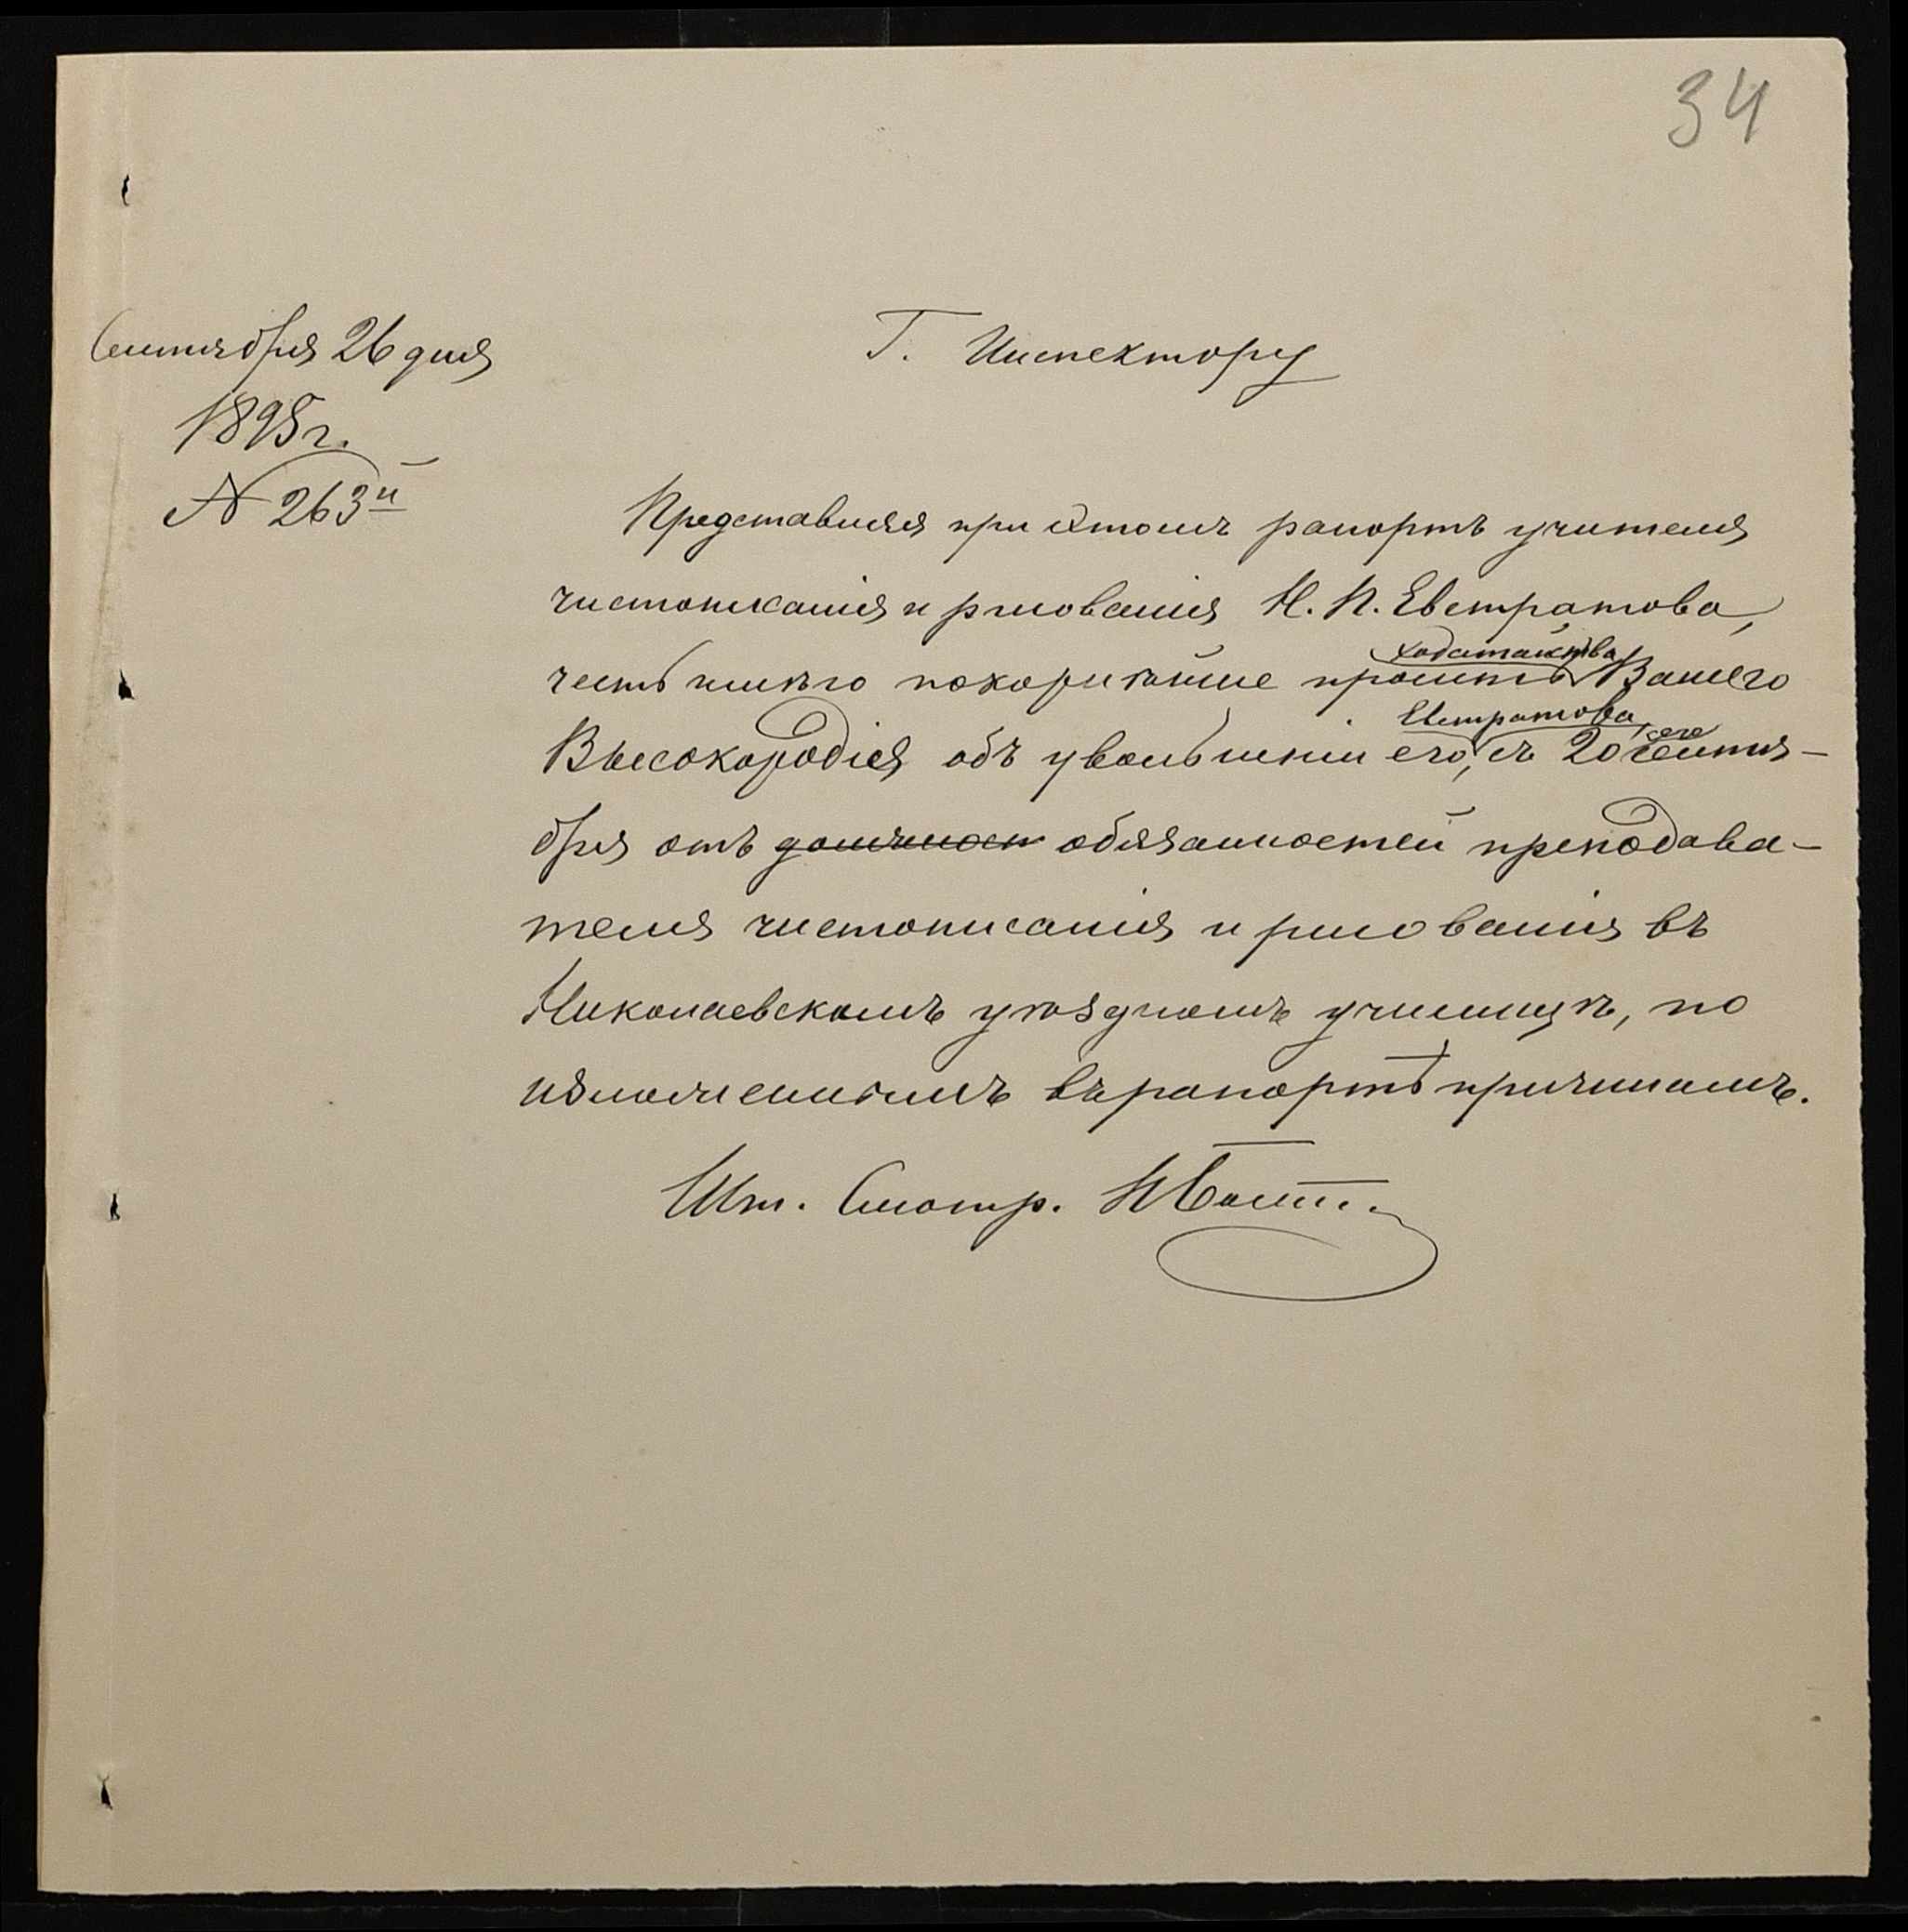 34
Сентября 26 дня
1895 г.
№ 263й
Г. Инспектору
Представляя при этомъ рапортъ учителя
чистописанія и рисованія Н. П. Евстратова,
честь имѣю покорнѣйше просить ходатайства Вашего
Высокородія объ увольненіи его, Евстратова, съ 20 сего сентя-
бря отъ должност обязанностей преподава-
теля чистописанія и рисованія въ
Николаевскомъ уѣздномъ училищѣ, по
изложеннымъ въ рапортѣ причинамъ.
Шт. Смотр.